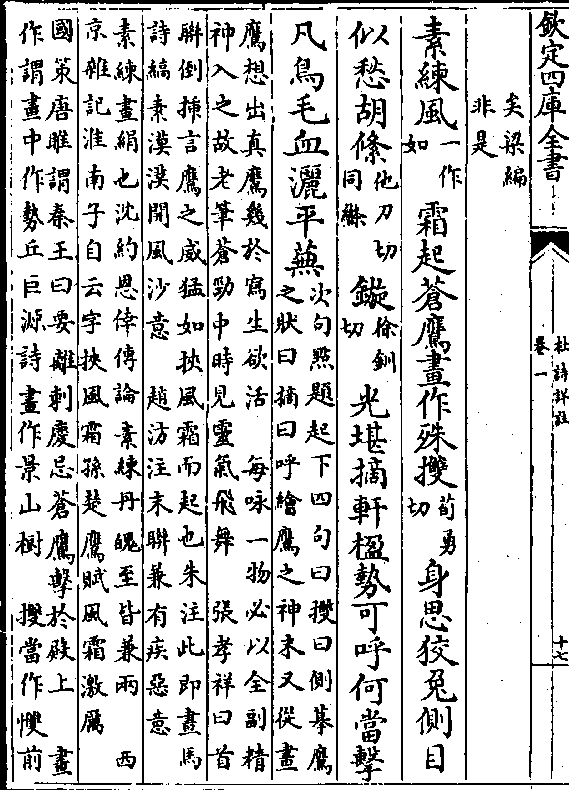 欽定四庫全書
杜詩詳註
卷一
十七
矣梁編
非是
素練風一作
如霜起蒼鷹畫作殊㩳荀勇
切身思狡兔側目
似愁胡絛他刀切
同縧鏇徐釧
切光堪摘軒楹勢可呼何當擊
凡鳥毛血灑平蕪次句點題起下四句曰㩳曰側摹鷹
之狀曰摘曰呼繪鷹之神末又從畫
鷹想出真鷹幾於寫生欲活 每咏一物必以全副精
神入之故老筆蒼勁中時見靈氣飛舞 張孝祥曰首
聯倒挿言鷹之威猛如挾風霜而起也朱注此即畫馬
詩縞素漠漠開風沙意 趙汸注末聯兼有疾惡意
素練畫絹也沈約恩倖傳論素練丹魄至皆兼兩 西
京雜記淮南子自云字挾風霜孫楚鷹賦風霜激厲
國策唐雎謂秦王曰要離刺慶忌蒼鷹擊於殿上 畫
作謂畫中作勢丘巨源詩畫作景山樹 㩳當作愯前